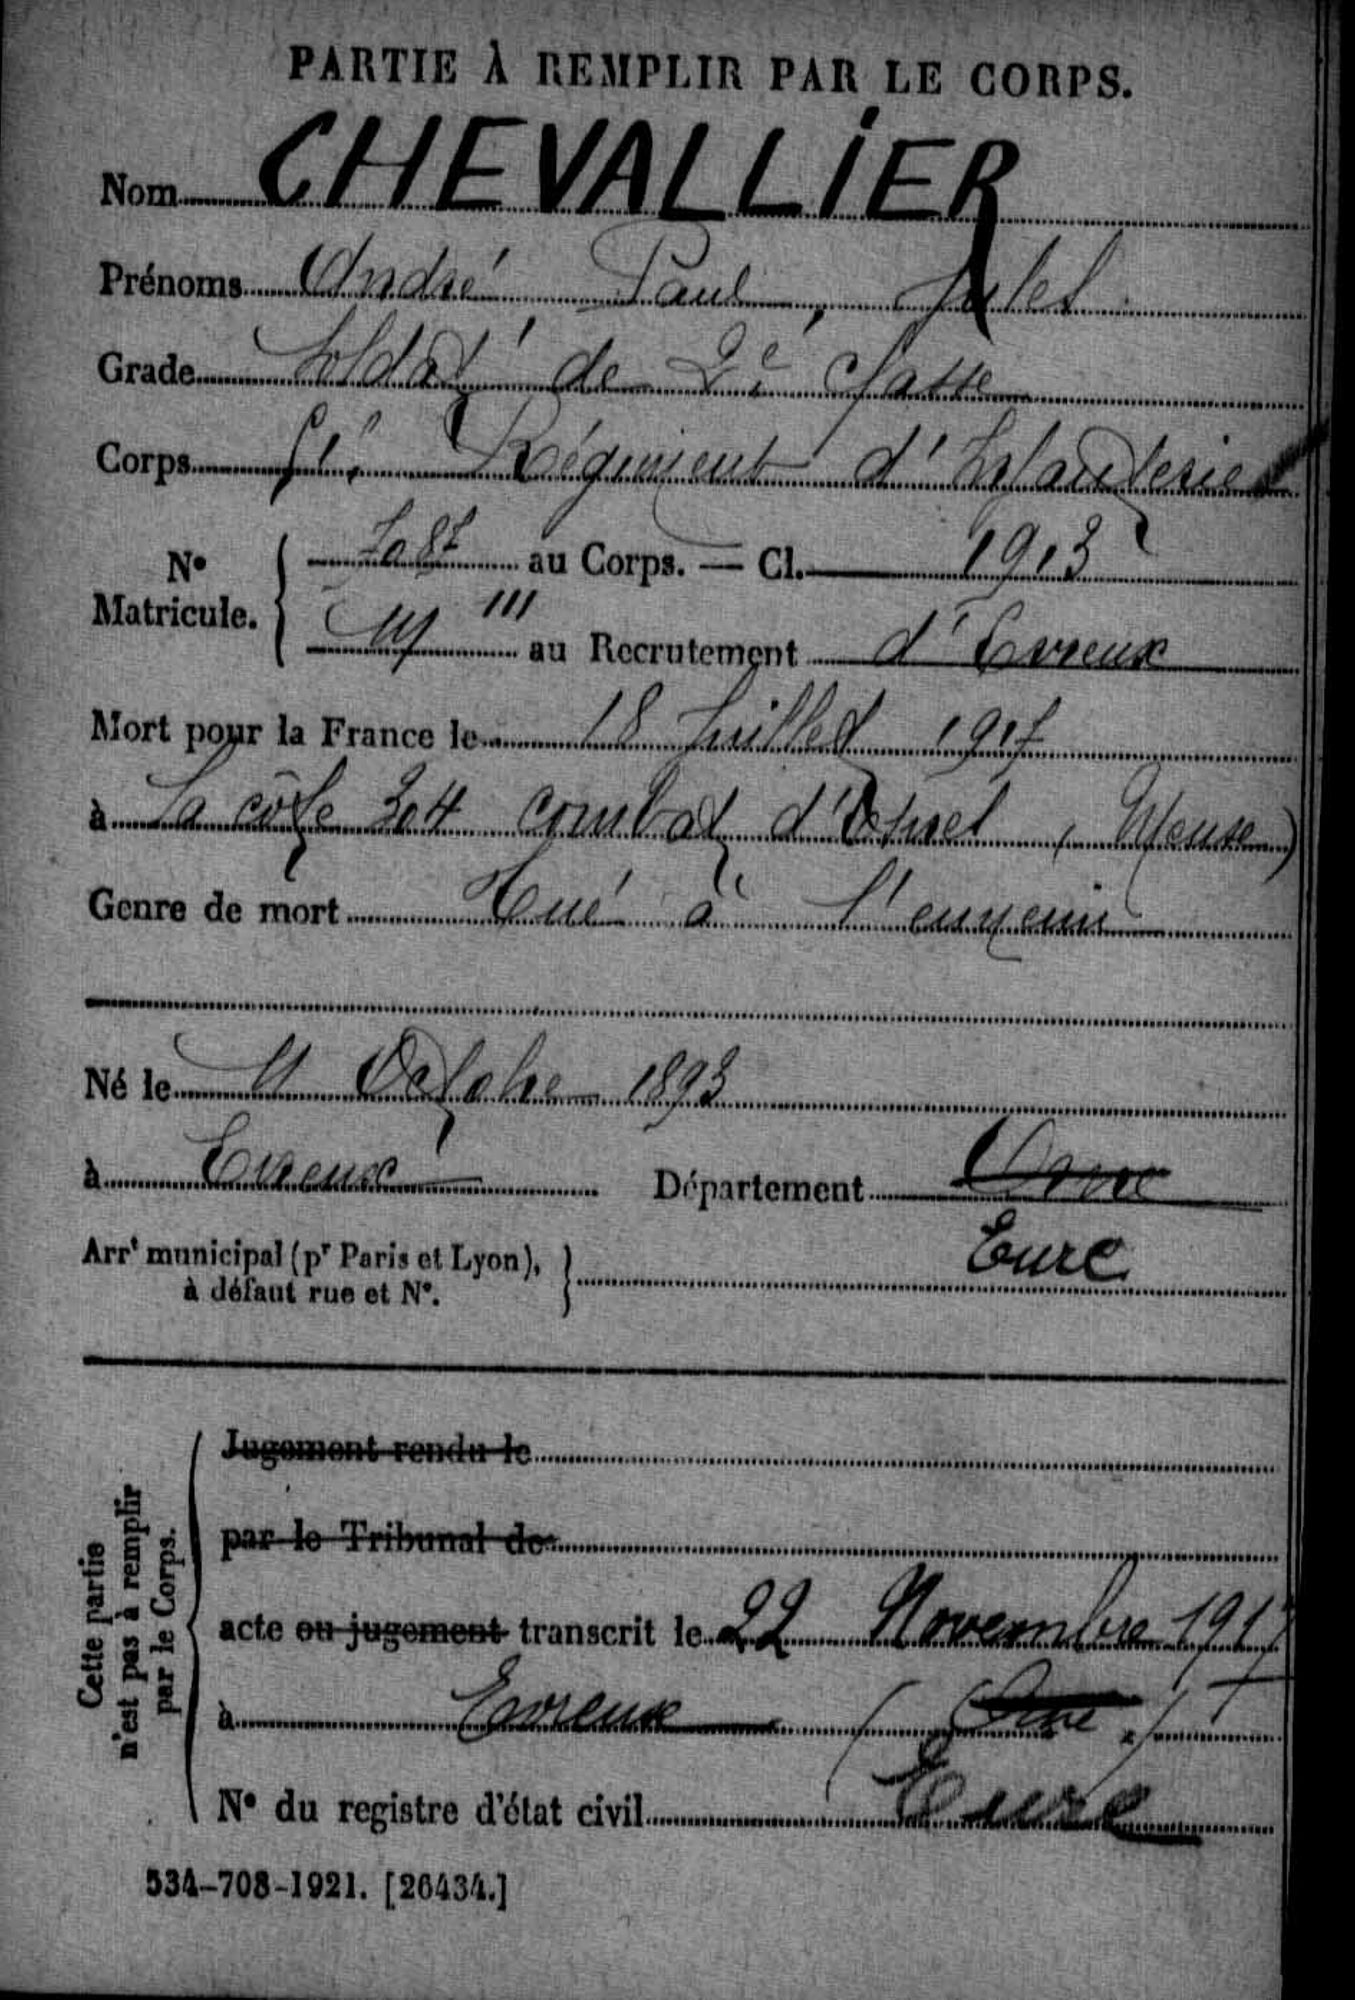 PARTIE À REMPLIR PAR LE CORPS.
Nom CHEVALLIER
Prénoms André Paul, Jules
Grade Soldat de 2e classe
Corps Régiment d'Infanterie
No Matricule. au Corps. — Cl. 1913
III au Recrutement d'Evreux
Mort pour la France le 18 Juillet 1917
à la côte 304 combat (Meuse)
Genre de mort Tué à l'ennemi
Né le Octobre 1893
à Evreux Département Orne
Eure
Arrt municipal (pr Paris et Lyon),
à défaut rue et No.
Cette partie
n'est pas à remplir
par le Corps.
Jugement rendu le
par le Tribunal de
acte ou jugement transcrit le 22 Novembre 1917
à Evreux (Orne.)
Eure
No du registre d'état civil
534-708-1921. [26434.]